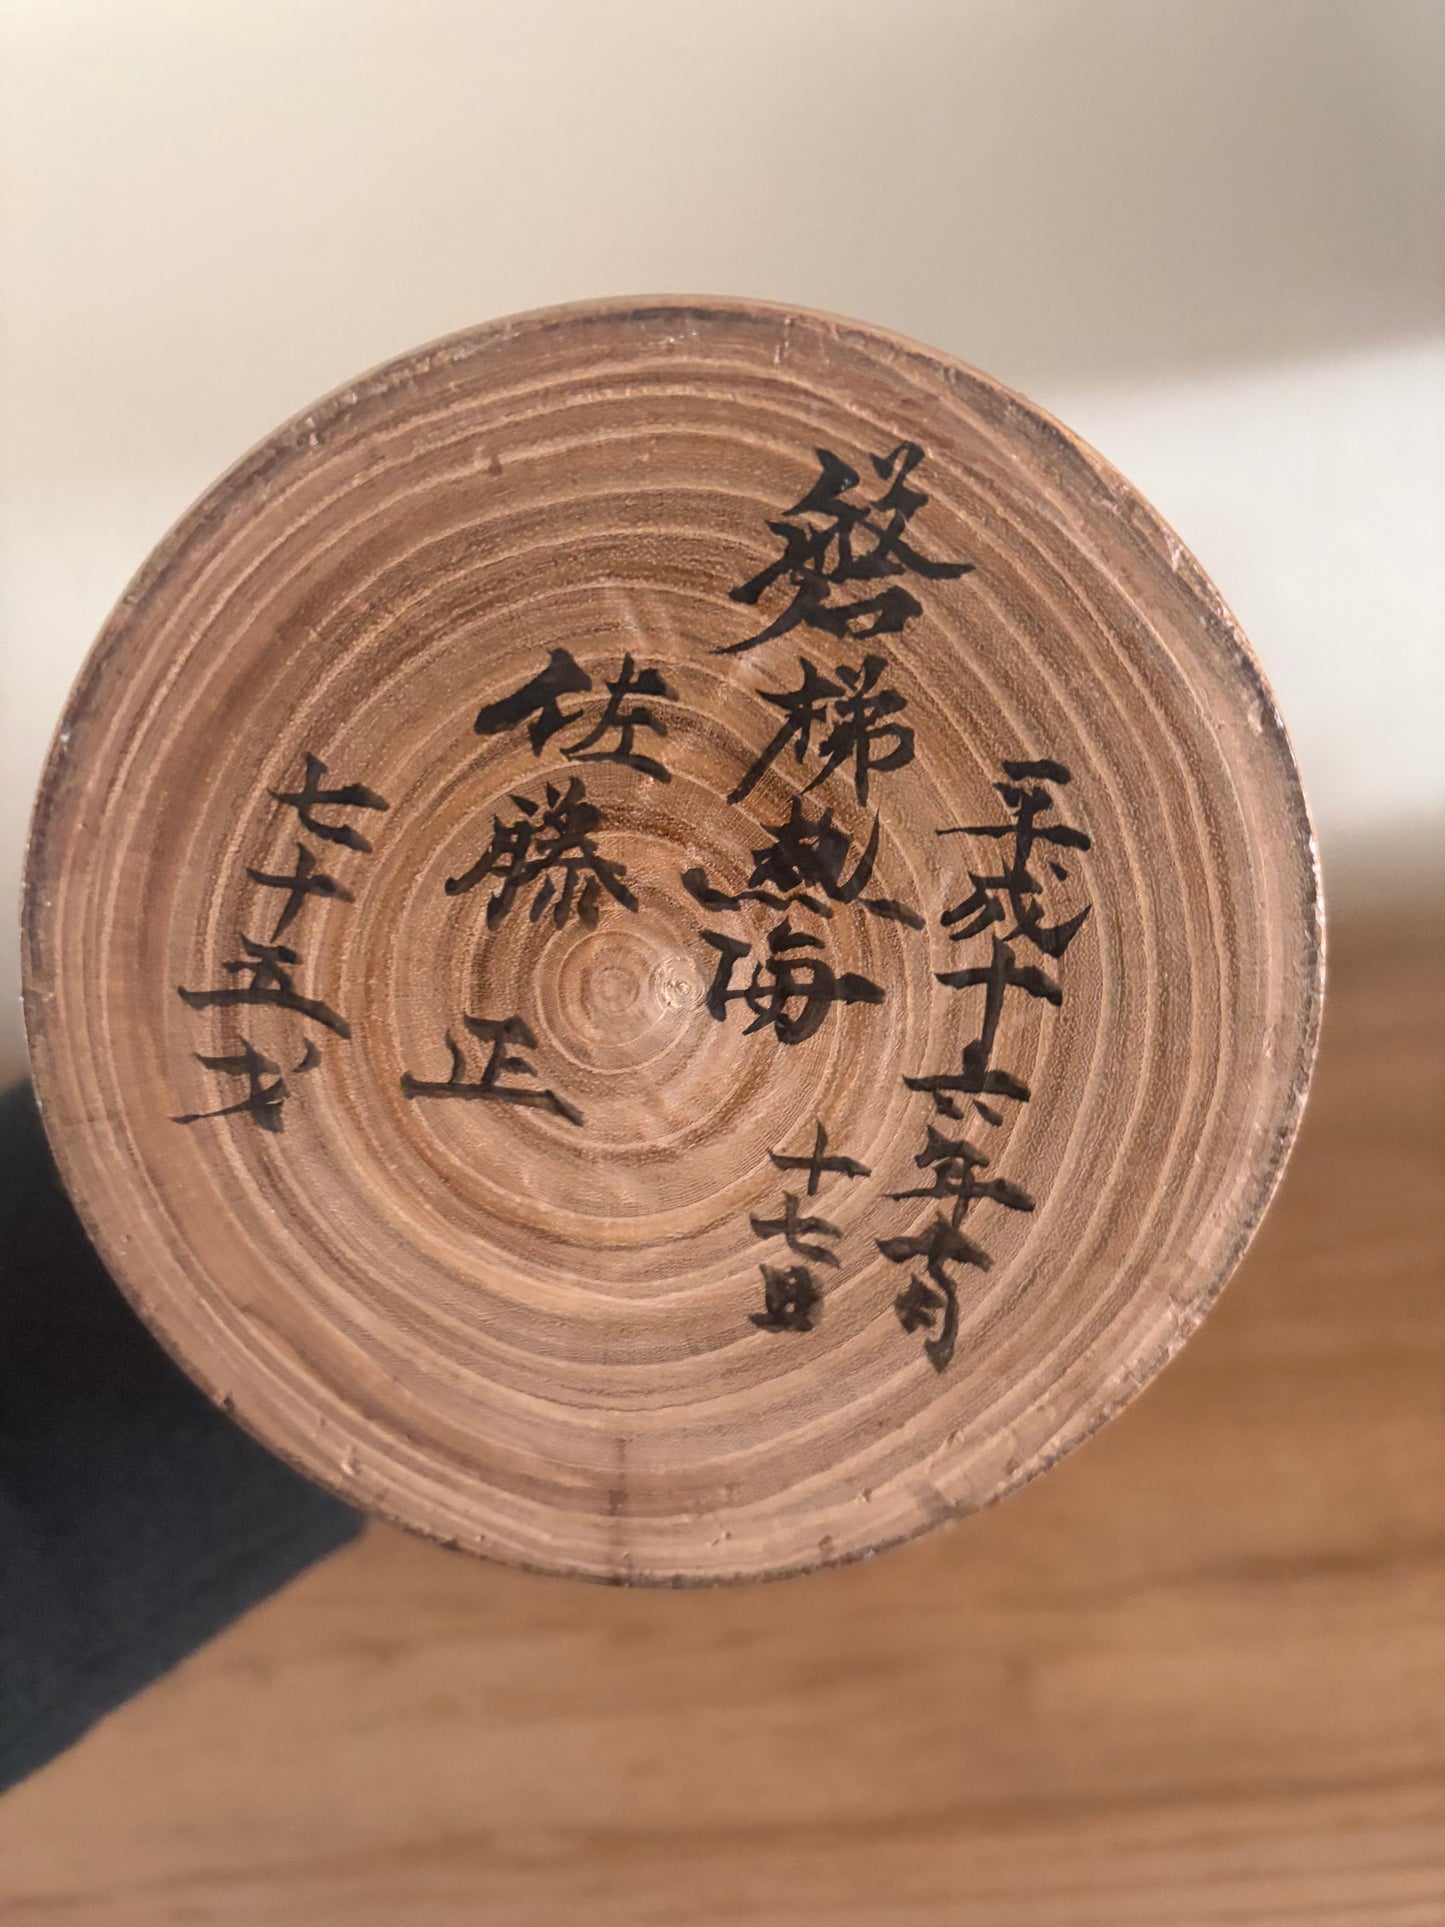 平成十六年十月
十七日
磐梯熱海
佐藤正
七十五才